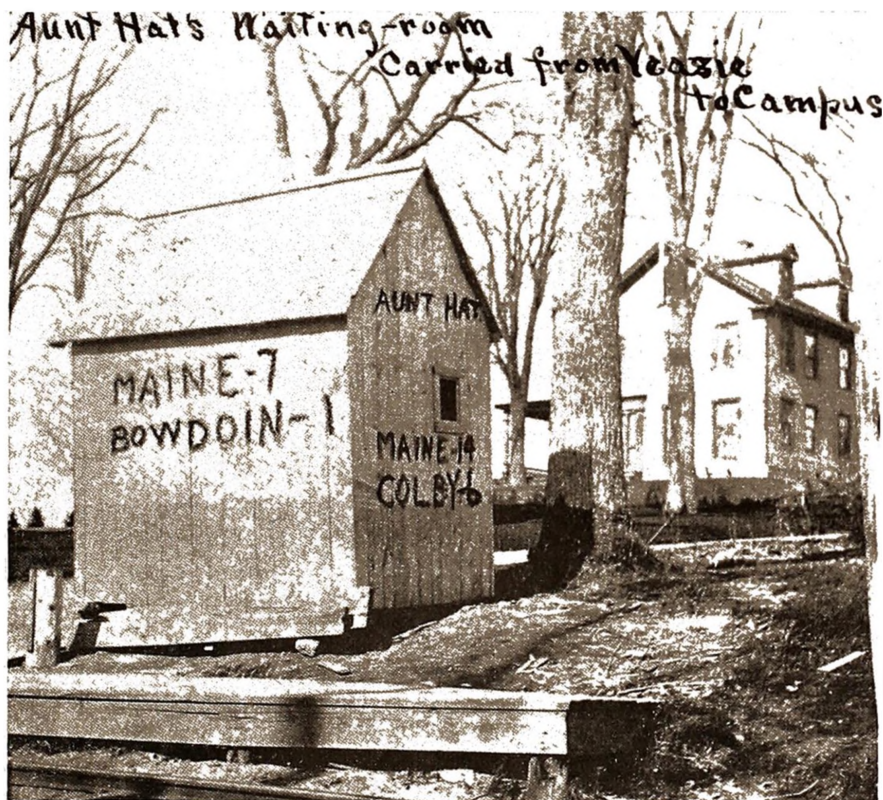 Aunt Hat's Waiting-room
Carried from Veazie
to Campus
AUNT HAT.
MAINE-7
BOWDOIN-1
MAINE-14
COLBY-6